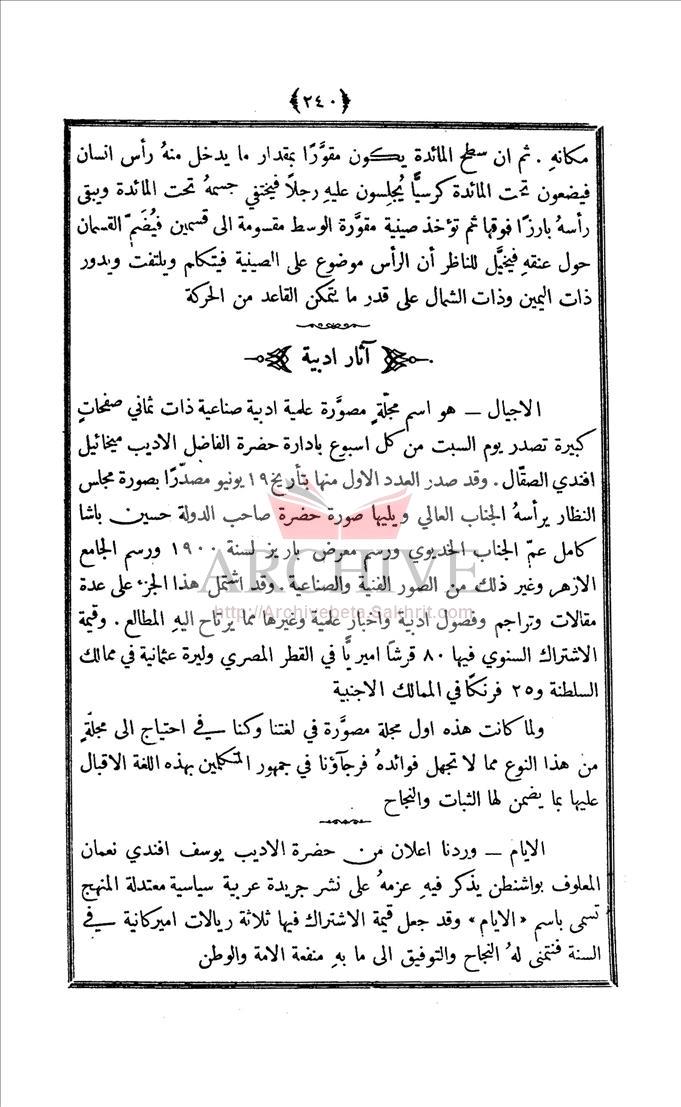 ﴿٢٤٠﴾
مكانهِ . ثم ان سطح المائدة يكون مقوَّرًا بمقدار ما يدخل منهُ رأس انسان
فيضعون تحت المائدة كرسيًّا يُجلِسون عليهِ رجلًا فيختفي جسمهُ تحت المائدة ويبقى
رأسهُ بارزًا فوقها ثم تؤخذ صينية مقوَّرة الوسط مقسومة الى قسمين فيُضَمّ القسمان
حول عنقهِ فيخيَّل للناظر أن الرأس موضوع على الصينية فيتكلم ويلتفت ويدور
ذات اليمين وذات الشمال على قدر ما يتمكن القاعد من الحركة
آثار ادبية
الاجيال — هو اسم مجلّةٍ مصوَّرة علمية ادبية صناعية ذات ثماني صفحاتٍ
كبيرة تصدر يوم السبت من كل اسبوع بادارة حضرة الفاضل الاديب ميخائيل
افندي الصقّال . وقد صدر العدد الاول منها بتأريخ ١٩ يونيو مصدّرًا بصورة مجلس
النظار يرأسهُ الجناب العالي ويليها صورة حضرة صاحب الدولة حسين باشا
كامل عمّ الجناب الخديوي ورسم معرض باريز لسنة ١٩٠٠ ورسم الجامع
الازهر وغير ذلك من الصور الفنية والصناعية . وقد اشتمل هذا الجزء على عدة
مقالات وتراجم وفصول ادبية واخبار علمية وغيرها مما يرتاح اليهِ المطالع . وقيمة
الاشتراك السنوي فيها ٨٠ قرشًا اميريًّا في القطر المصري وليرة عثمانية في ممالك
السلطنة و٢٥ فرنكًا في الممالك الاجنبية
ولما كانت هذه اول مجلة مصوَّرة في لغتنا وكنا في احتياج الى مجلّةٍ
من هذا النوع مما لا تجهل فوائدهُ فرجآؤنا في جمهور المتكلمين بهذه اللغة الاقبال
عليها بما يضمن لها الثبات والنجاح
الايام — وردنا اعلان من حضرة الاديب يوسف افندي نعمان
المعلوف بواشنطن يذكر فيهِ عزمهُ على نشر جريدة عربية سياسية معتدلة المنهج
تسمى باسم «الايام» وقد جعل قيمة الاشتراك فيها ثلاثة ريالات اميركانية في
السنة فنتمنى لهُ النجاح والتوفيق الى ما بهِ منفعة الامة والوطن
ARCHIVE
http://Archivebeta.Sakhrit.com